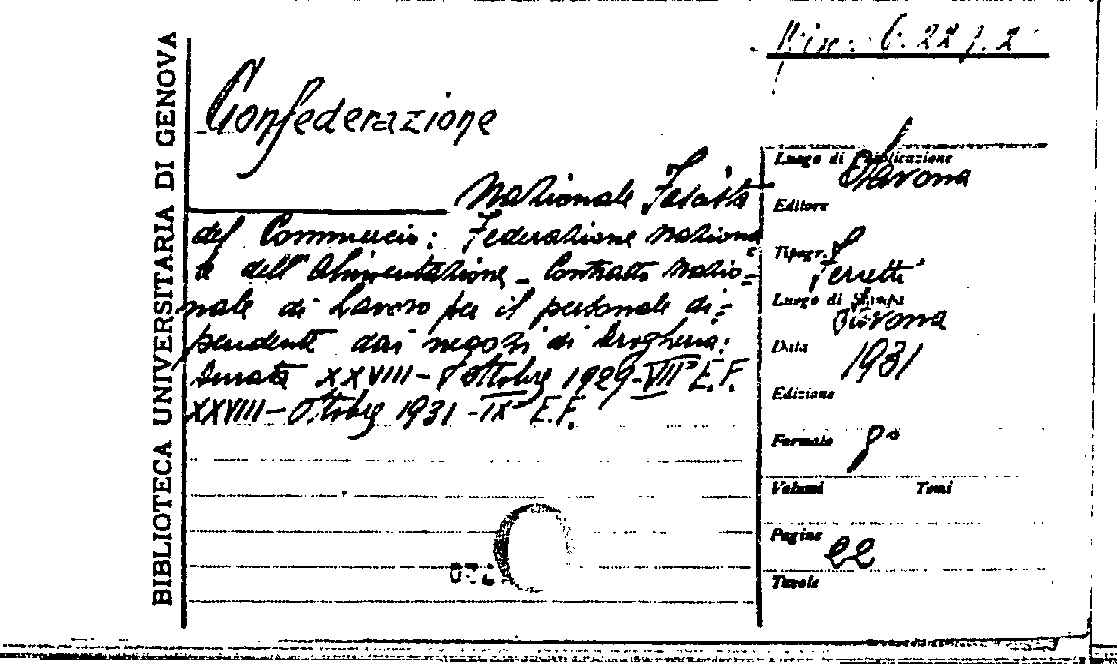 BIBLIOTECA UNIVERSITARIA DI GENOVA
Misc. C. 22 7. 2
Confederazione
Nazionale Fascista
del Commercio: Federazione naziona
le dell'Alimentazione - Contratto nazio=
nale di Lavoro per il personale di=
pendente dai negozi di drogheria:
Durata XXVIII - Ottobre 1929 - VII° E.F.
XXVIII - Ottobre 1931 - IX° E.F.
Luogo di pubblicazione Savona
Editore
Tipogr. Ferretti
Luogo di Stampa Savona
Data 1931
Edizione
Formato 8°
Volumi Tomi
Pagine 22
Tavole